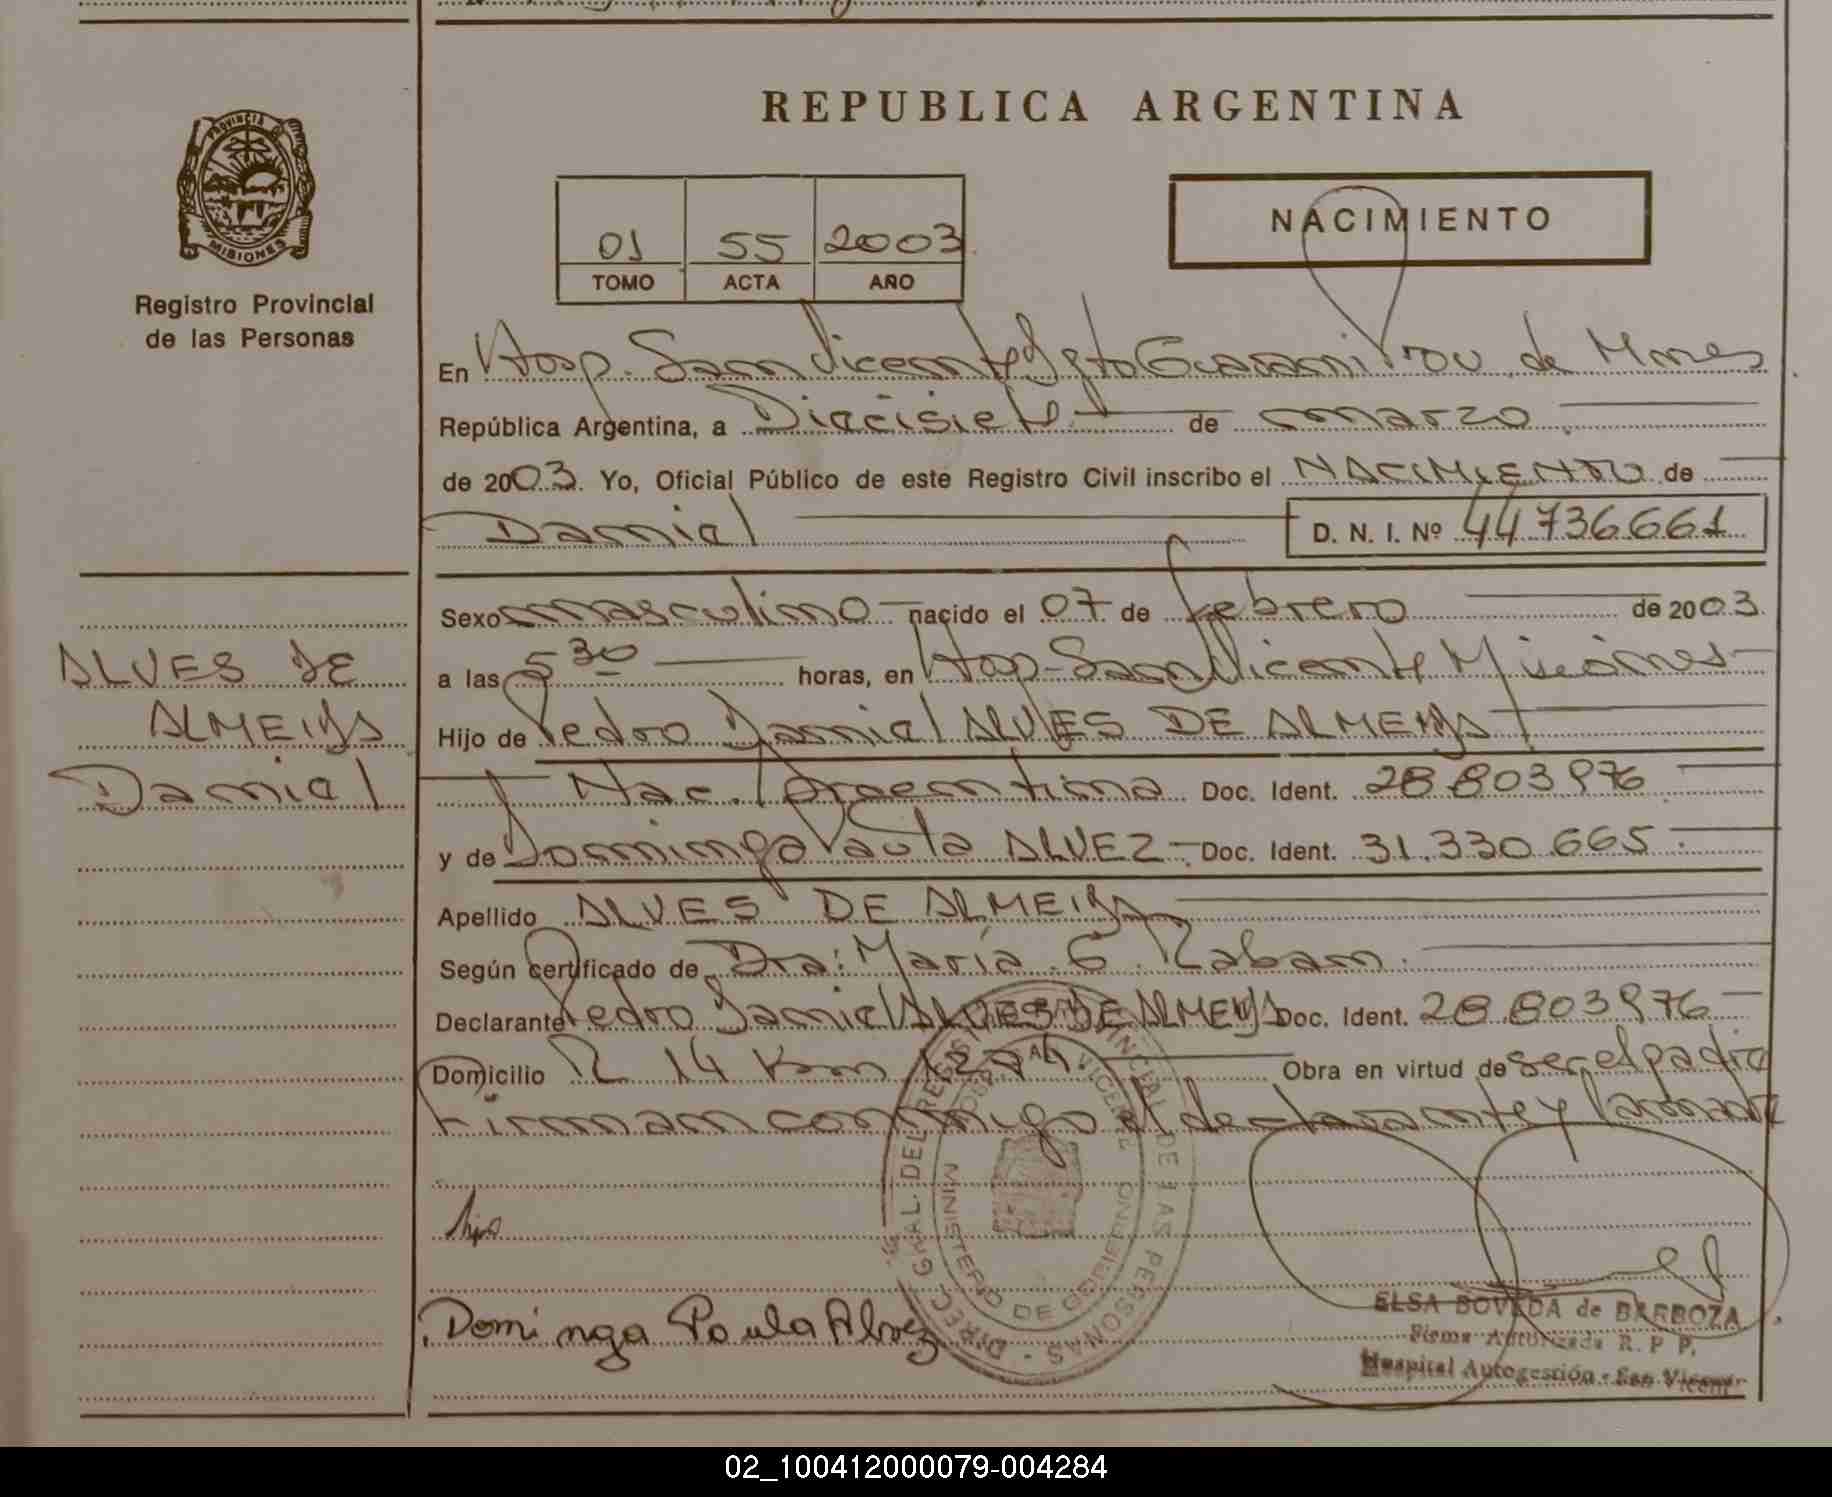 REPUBLICA ARGENTINA
PROVINCIA DE
MISIONES
Registro Provincial
de las Personas
01 55 2003
TOMO ACTA AÑO
NACIMIENTO
En Hosp. San Vicente Dpto Guarani Prov de Mnes
República Argentina, a Diecisiete de marzo
de 2003. Yo, Oficial Público de este Registro Civil inscribo el NACIMIENTO de
Daniel D. N. I. Nº 44736661
Sexo masculino nacido el 07 de febrero de 2003.
a las 5 30 horas, en Hosp- San Vicente Misiones
Hijo de Pedro Daniel ALVES DE ALMEIDA
Nac. Argentina Doc. Ident. 28.803976
y de Dominga Paula ALVEZ - Doc. Ident. 31.330.665
Apellido ALVES DE ALMEIDA
Según certificado de Dra: María G.
Declarante Pedro Daniel ALVES DE ALMEIDA Doc. Ident. 28.803976
Domicilio R 14 Km Obra en virtud de ser el padre
Firman conmigo el declarante y la madre
ALVES DE
ALMEIDA
Daniel
Dominga Paula Alvez
DIREC. GRAL. DEL REGISTRO PROVINCIAL DE LAS PERSONAS
MINISTERIO DE GOBIERNO
ELSA BOVEDA de BARBOZA
Firma Autorizada R. P. P.
Hospital Autogestión - San Vicente
02_100412000079-004284